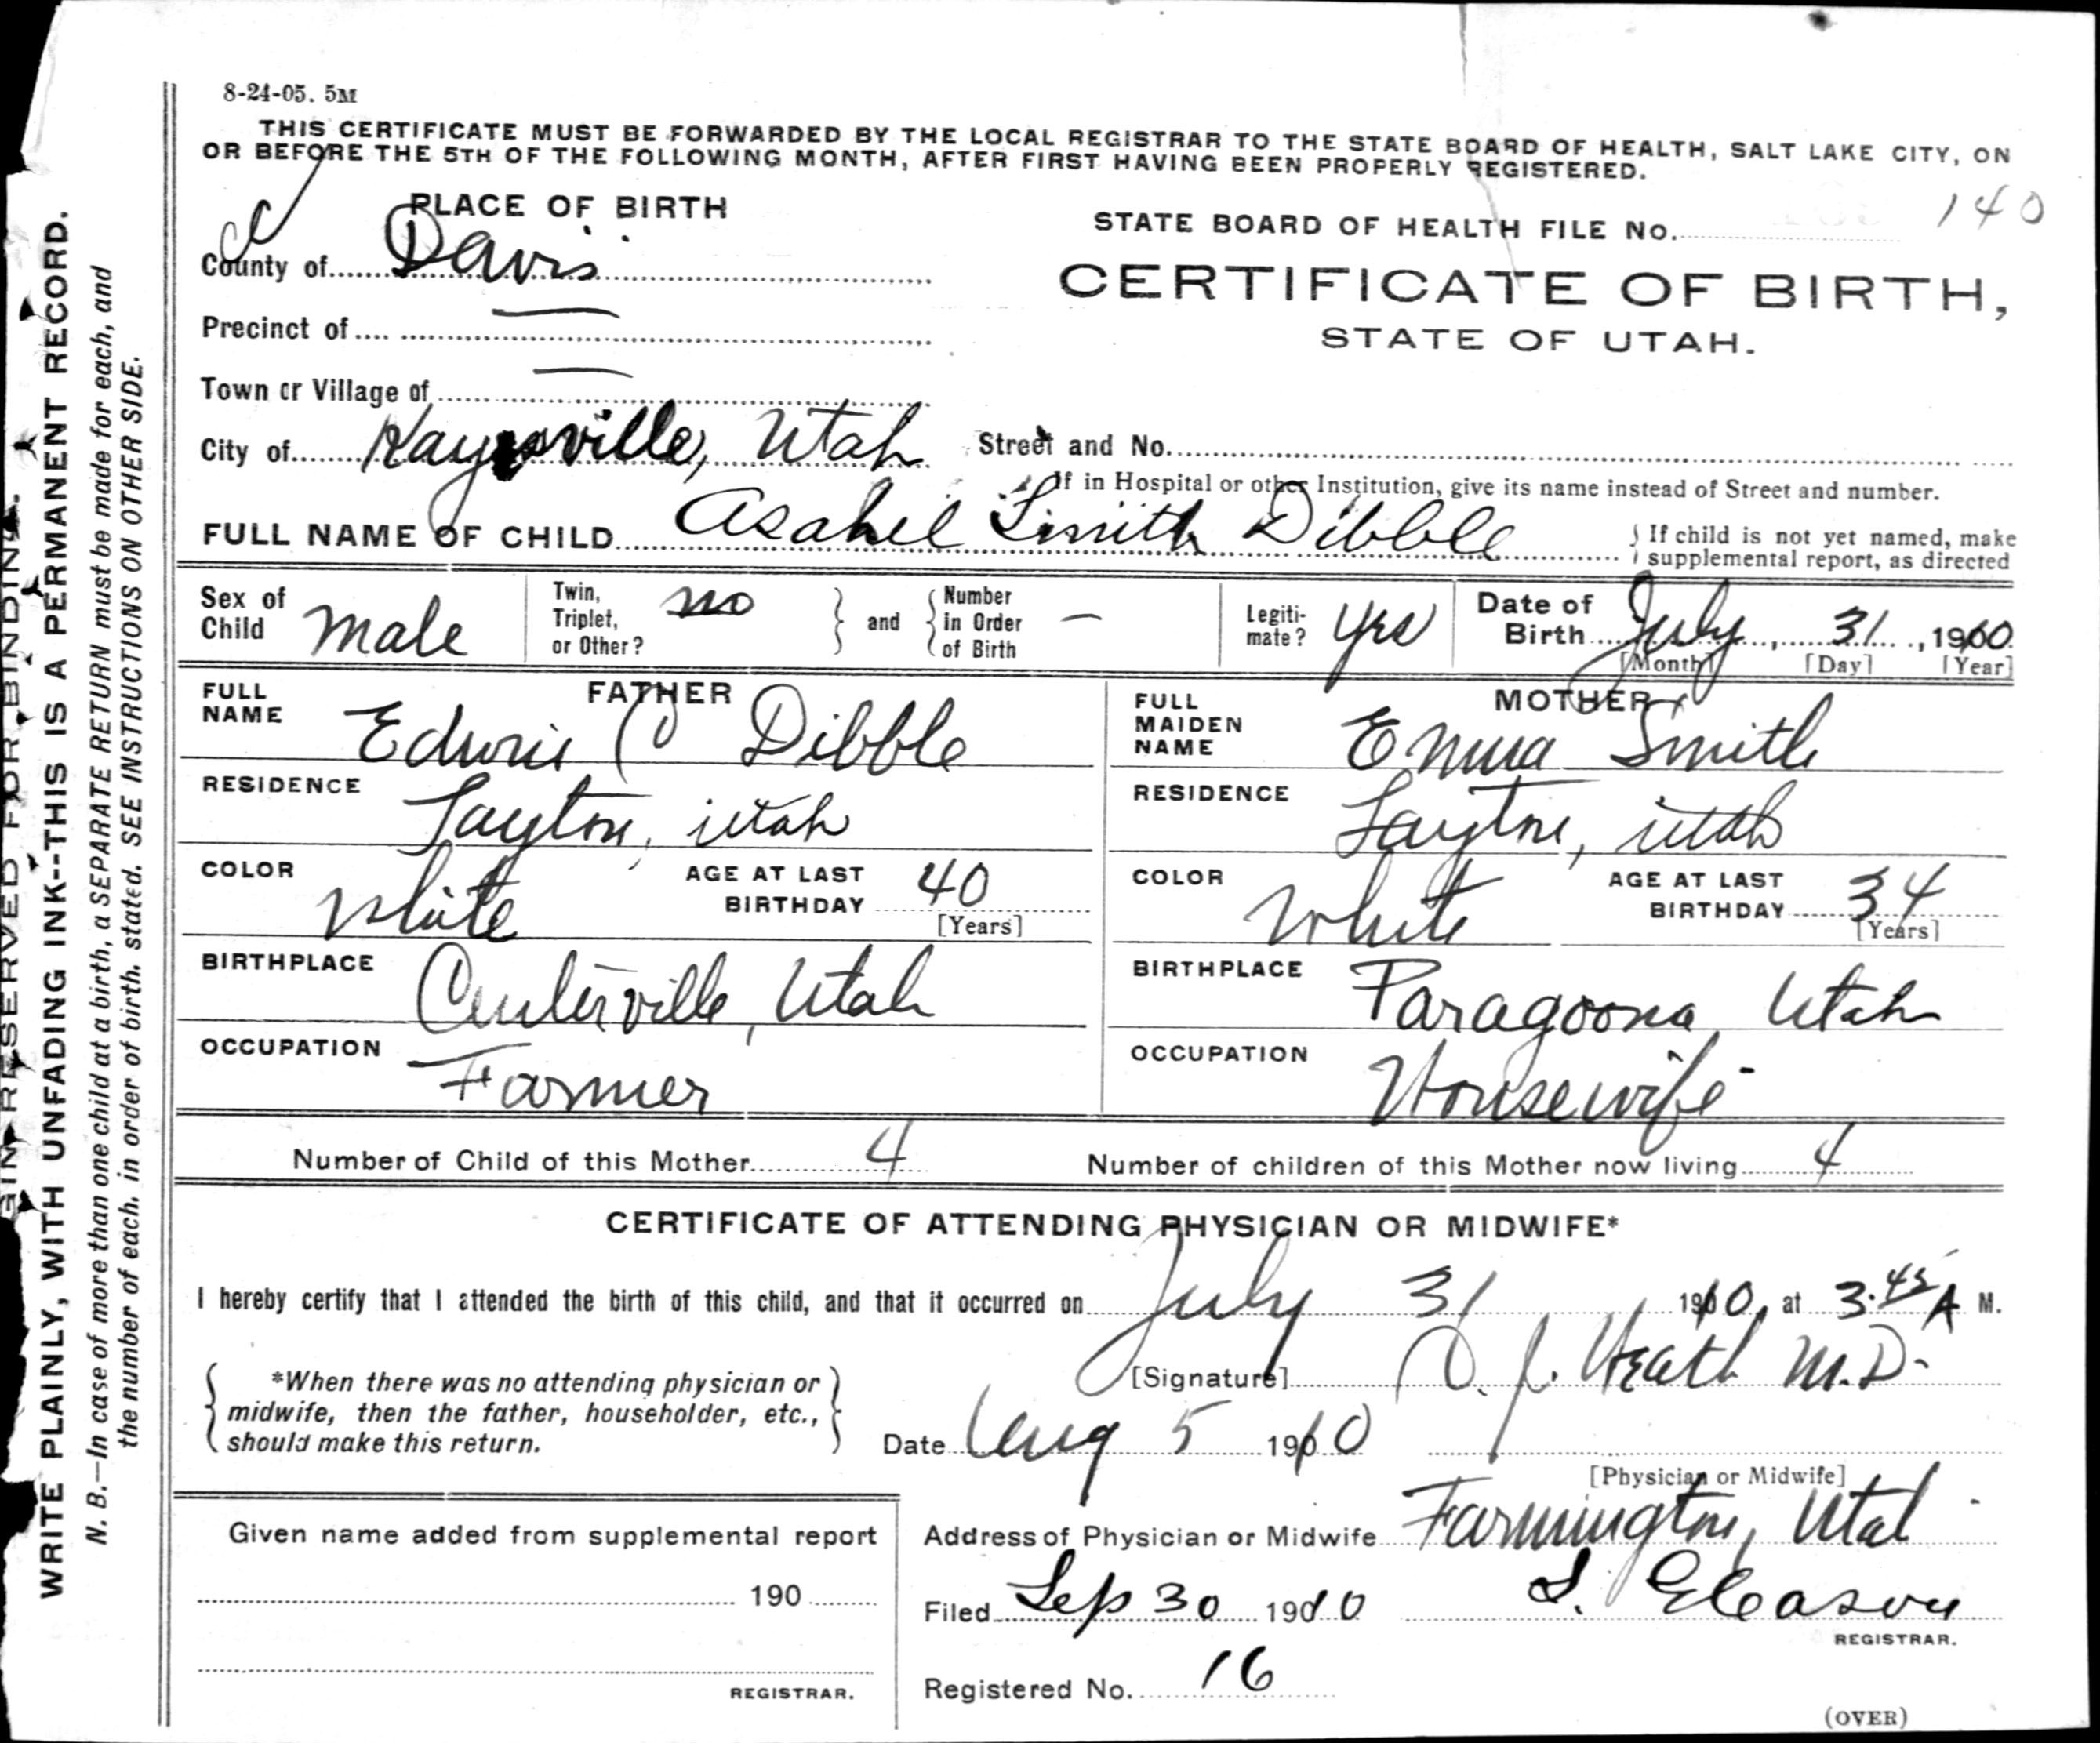 8-24-05. 5M
THIS CERTIFICATE MUST BE FORWARDED BY THE LOCAL REGISTRAR TO THE STATE BOARD OF HEALTH, SALT LAKE CITY, ON
OR BEFORE THE 5TH OF THE FOLLOWING MONTH, AFTER FIRST HAVING BEEN PROPERLY REGISTERED.
140
PLACE OF BIRTH
STATE BOARD OF HEALTH FILE No.
County of Davis
CERTIFICATE OF BIRTH,
Precinct of —
STATE OF UTAH.
Town or Village of —
City of Kaysville, Utah Street and No.
If in Hospital or other Institution, give its name instead of Street and number.
FULL NAME OF CHILD Asahel Smith Dibble { If child is not yet named, make
supplemental report, as directed
Sex of Child male
Twin, Triplet, or Other? no } and { Number in Order of Birth —
Legiti-mate? yes
Date of Birth July, 31, 1910
[Month] [Day] [Year]
FATHER
FULL NAME Edwin C Dibble
RESIDENCE Layton, Utah
COLOR White AGE AT LAST BIRTHDAY 40
[Years]
BIRTHPLACE Centerville, Utah
OCCUPATION Farmer
MOTHER
FULL MAIDEN NAME Emma Smith
RESIDENCE Layton, Utah
COLOR White AGE AT LAST BIRTHDAY 34
[Years]
BIRTHPLACE Paragoona, Utah
OCCUPATION Housewife
Number of Child of this Mother 4 Number of children of this Mother now living 4
CERTIFICATE OF ATTENDING PHYSICIAN OR MIDWIFE*
I hereby certify that I attended the birth of this child, and that it occurred on July 31 1910, at 3.45 A M.
{ *When there was no attending physician or
midwife, then the father, householder, etc.,
should make this return. }
[Signature] Heath M.D.
Date Aug 5 1910
[Physician or Midwife]
Given name added from supplemental report
190
REGISTRAR.
Address of Physician or Midwife Farmington, Utah
Filed Sep 30 1910 S. Gleason
REGISTRAR.
Registered No. 16
(OVER)
RESERVED FOR BINDING.
WRITE PLAINLY, WITH UNFADING INK--THIS IS A PERMANENT RECORD.
N. B.—In case of more than one child at a birth, a SEPARATE RETURN must be made for each, and
the number of each, in order of birth, stated. SEE INSTRUCTIONS ON OTHER SIDE.